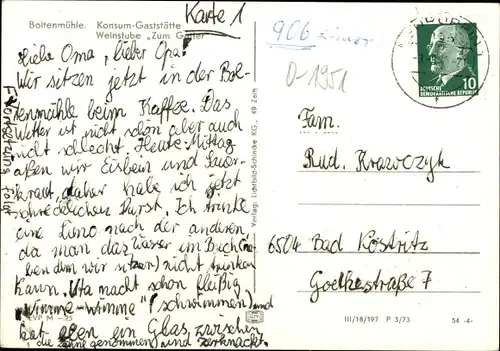 Karte 1
Boltenmühle. Konsum-Gaststätte
Weinstube „Zum Gatter"
Liebe Oma, lieber Opa!
Wir sitzen jetzt in der Bol-
tenmühle beim Kaffee. Das
Wetter ist nicht schön aber auch
nicht schlecht. Heute Mittag
aßen wir Eisbein und Sauer-
kraut, daher habe ich jetzt
schrecklichen Durst. Ich trinke
eine Limo nach der anderen,
da man das Wasser im Buch (ne-
ben dem wir sitzen) nicht trinken
kann. Uta macht schon fleißig
"Wimme-wimme" (schwimmen) und
hat eben ein Glas zwischen
die Zähne genommen und zerknackt.
Fortsetzung folgt
VP M -,25
Verlag: Lichtbild-Schincke KG, 49 Zeitz
906
D-1951
DEUTSCHE
DEMOKRATISCHE REPUBLIK
10
Fam.
Rud. Krawczyk
6504 Bad Köstritz
Goethestraße 7
III/18/197 P 3/73
54 -4-